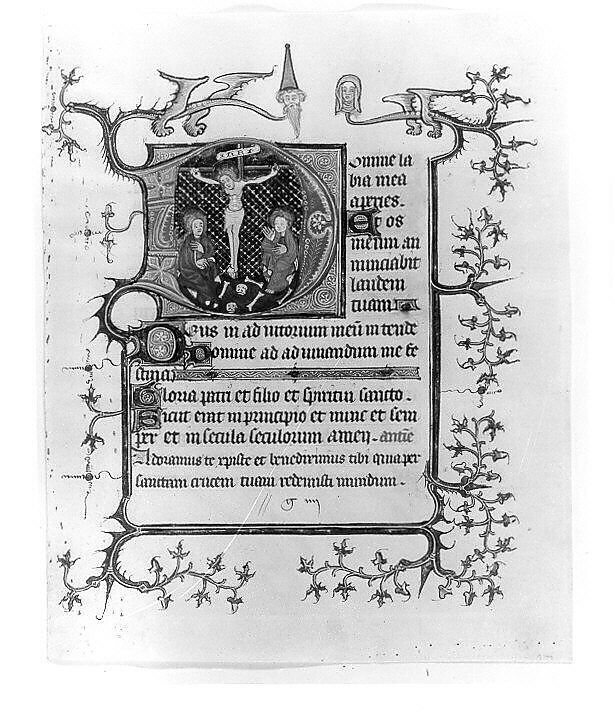 INRI
Domine la
bia mea
aperies.
Et os
meum an
nunciabit
laudem
tuam
Deus in adiutorium meū intende
Domine ad adiuuandum me fe
stina
Gloria patri et filio et spiritui sancto.
Sicut erat in principio et nunc et sem
per et in secula seculorum amen.
Adoramus te xpiste et benedicimus tibi quia per
sanctam crucem tuam redemisti mundum.